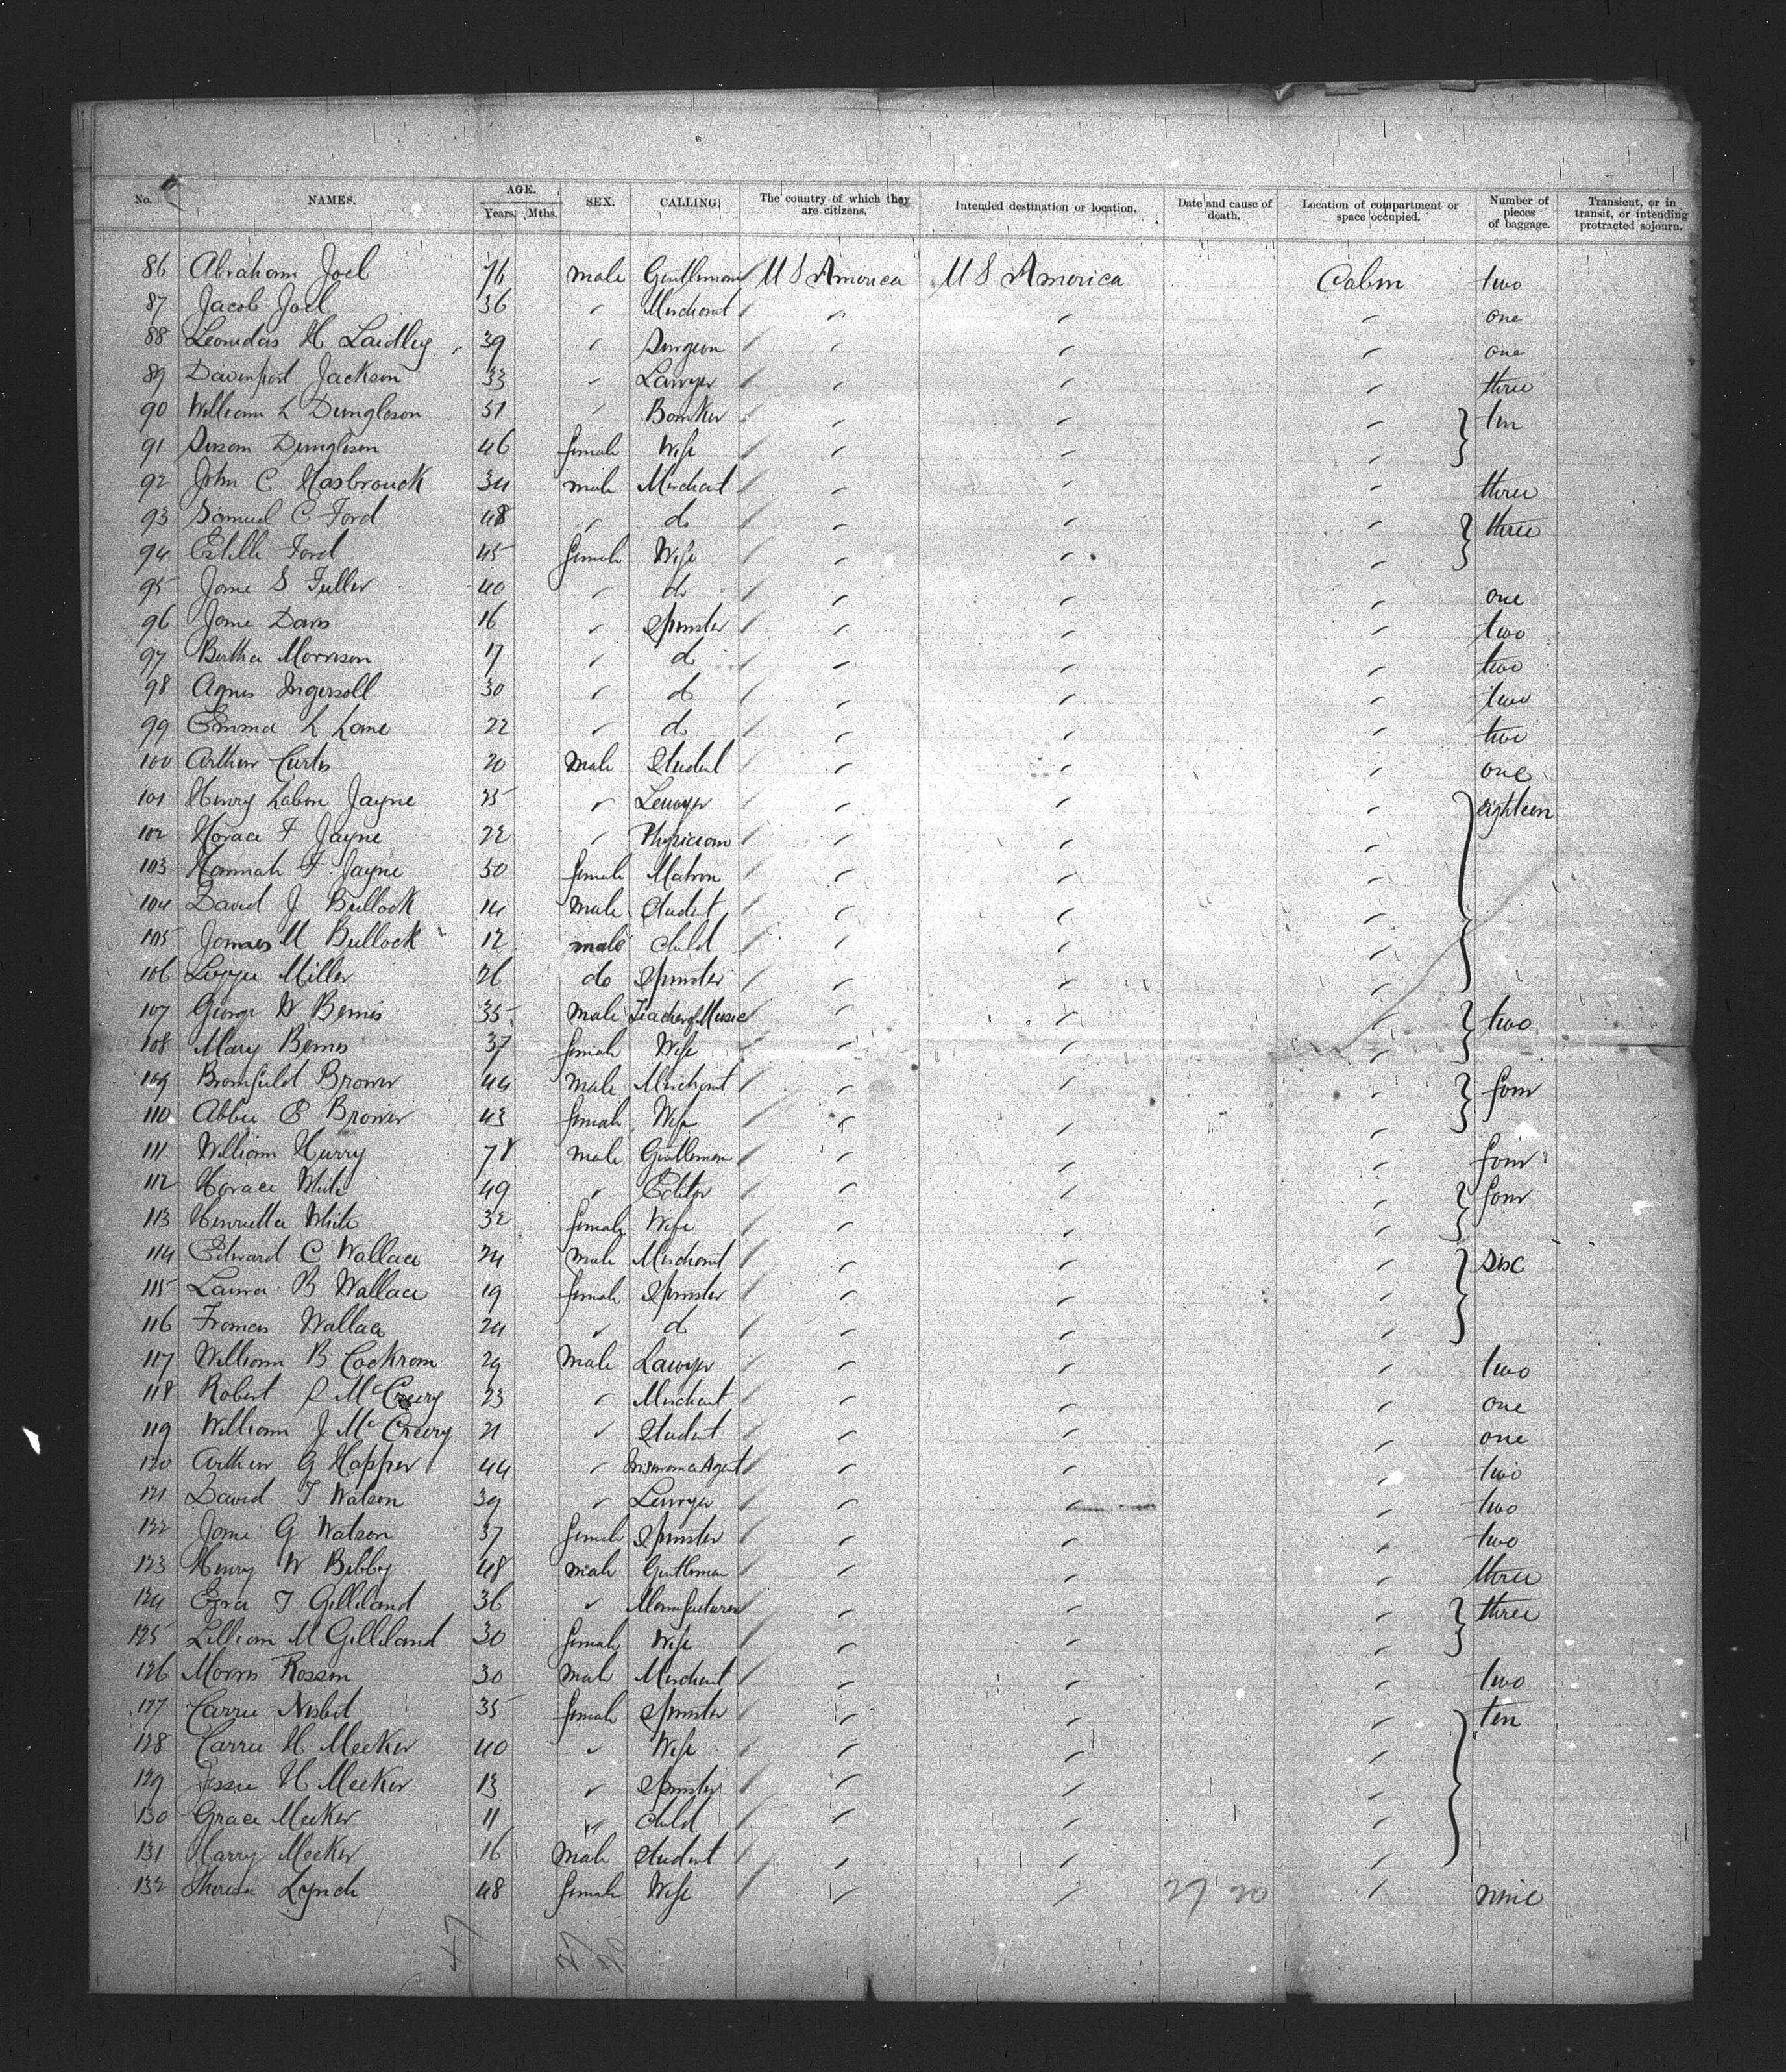 No. NAMES. AGE. Years. Mths. SEX. CALLING. The country of which they are citizens. Intended destination or location. Date and cause of death. Location of compartment or space occupied. Number of pieces of baggage. Transient, or in transit, or intending protracted sojourn.
86 Abraham Joel 76 male Gentleman U S America U S America Cabin two
87 Jacob Joel 36 " Merchant " " " one
88 Leonidas H Laidley 39 " Surgeon " " " one
89 Davenport Jackson 33 " Lawyer " " " three
90 William L Dunglison 51 " Banker " " " ten
91 Susan Dunglison 46 female Wife " " "
92 John C Hasbrouck 34 male Merchant " " " three
93 Samuel C Ford 48 " do " " " three
94 Estelle Ford 45 female Wife " " "
95 Jane S Fuller 40 " do " " " one
96 Jane Davis 16 " Spinster " " " two
97 Bertha Morrison 17 " do " " " two
98 Agnes Ingersoll 30 " do " " " two
99 Emma L Lane 22 " do " " " two
100 Arthur Curtis 20 male Student " " " one
101 Henry Labon Jayne 25 " Lawyer " " " eighteen
102 Horace F Jayne 22 " Physician " " "
103 Hannah F Jayne 50 female Matron " " "
104 David J Bullock 14 male Student " " "
105 James M Bullock 12 male Child " " "
106 Lizzie Miller 26 do Spinster " " "
107 George W Bemis 35 male Teacher of Music " " " two
108 Mary Bemis 37 female Wife " " "
109 Bromfield Brower 44 male Merchant " " " four
110 Abbie E Brower 43 female Wife " " "
111 William Hurry 71 male Gentleman " " " four
112 Horace White 49 " Editor " " " four
113 Henrietta White 32 female Wife " " "
114 Edward C Wallace 24 male Merchant " " " six
115 Laura B Wallace 19 female Spinster " " "
116 Frances Wallace 24 " do " " "
117 William B Cockram 29 male Lawyer " " " two
118 Robert S McCreery 23 " Merchant " " " one
119 William J McCreery 21 " Student " " " one
120 Arthur G Happer 44 " Insurance Agent " " " two
121 David T Watson 39 " Lawyer " " " two
122 Jane G Watson 37 female Spinster " " " two
123 Henry W Bibby 48 male Gentleman " " " three
124 Ezra T Gilliland 36 " Manufacturer " " " three
125 Lillian M Gilliland 30 female Wife " " "
126 Morris Rossin 30 male Merchant " " " two
127 Carrie Nisbet 35 female Spinster " " " ten
128 Carrie H Meeker 40 " Wife " " "
129 Jessie H Meeker 13 " Spinster " " "
130 Grace Meeker 11 " Child " " "
131 Harry Meeker 16 male Student " " "
132 Theresa Lynch 48 female Wife " " 27 20 " nine
47 27 20